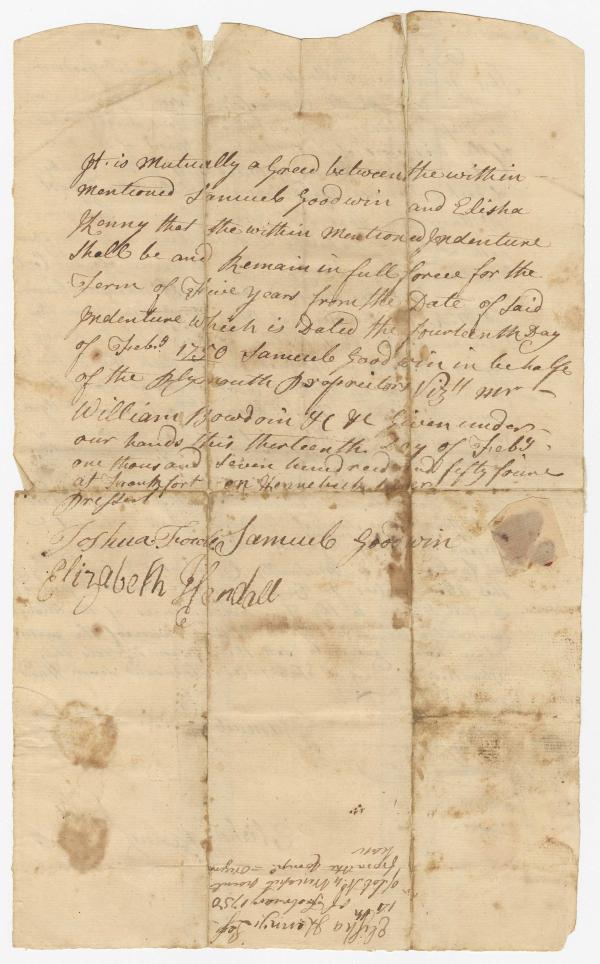 It is mutually a Greed between the within
mentioned Samuel Goodwin and Elisha
Kenny that the within mentioned Indenture
Shall be and Remain in full force for the
Term of Five years from the Date of Said
Indenture which is Dated the fourteenth Day
of Feb.y 1750 Samuel Goodwin in behalfe
of the Plymouth Propriitors Viz.tt mr
William Bowdoin &c &c Given under
our hands this thirteenth Day of Feb.y
one thousand Seven hundred and fifty foure
at Frankfort on Kennebeck River
Present
Joshua Samuel Goodwin
Elizabeth Kendall
Elisha Kenny
14th of February 1750
of Lot No. 4
from the